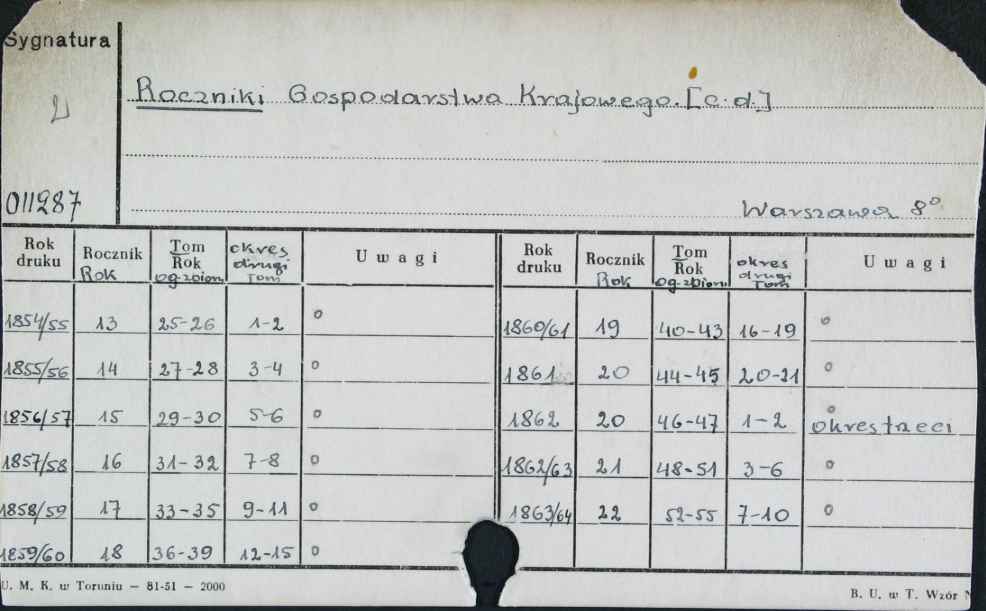 Sygnatura
Roczniki Gospodarstwa Krajowego. [c.d.]
011287
Warszawa 8°
Rok druku | Rocznik Rok | Tom Rok og. zbioru | okres drugi Tom | Uwagi | Rok druku | Rocznik Rok | Tom Rok og. zbioru | okres drugi Tom | Uwagi
1854/55 13 25-26 1-2 o 1860/61 19 40-43 16-19 o
1855/56 14 27-28 3-4 o 1861 20 44-45 20-21 o
1856/57 15 29-30 5-6 o 1862 20 46-47 1-2 o okres trzeci
1857/58 16 31-32 7-8 o 1862/63 21 48-51 3-6 o
1858/59 17 33-35 9-11 o 1863/64 22 52-55 7-10 o
1859/60 18 36-39 12-15 o
U. M. K. w Toruniu — 81-51 — 2000
B. U. w T. Wzór N